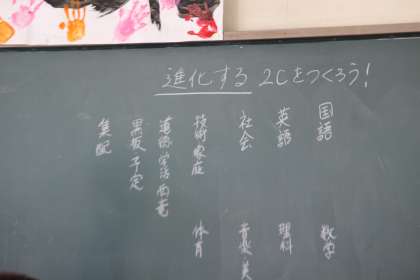 進化する 2Cをつくろう!
国語 数学
英語 理科
社会 音楽 美
技術家庭 体育
道徳 学活 両竜
黒板 予定
集配